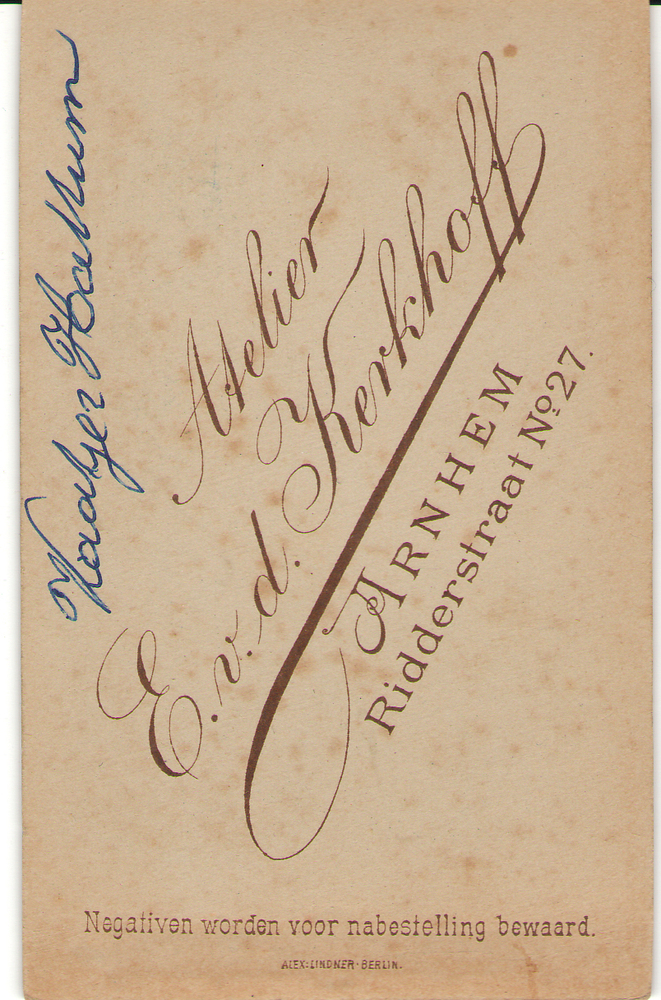 Atelier
E. v. d. Kerkhoff
ARNHEM
Ridderstraat No 27.
Negativen worden voor nabestelling bewaard.
ALEX: LINDNER · BERLIN.